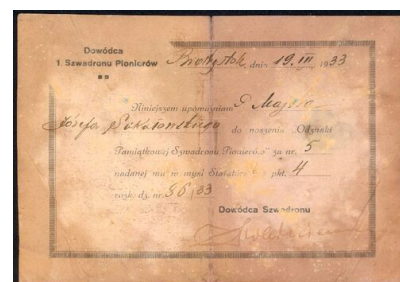 Dowódca
1. Szwadronu Pionierów
Białystok, dnia 19. III 1933
Niniejszem upoważniam P. Majora
Józefa Sokołowskiego do noszenia „Odznaki
Pamiątkowej Szwadronu Pionierów” za nr. 5
nadanej mu w myśl Statutu pkt. 4
rozk. dz. nr. 56/33
Dowódca Szwadronu